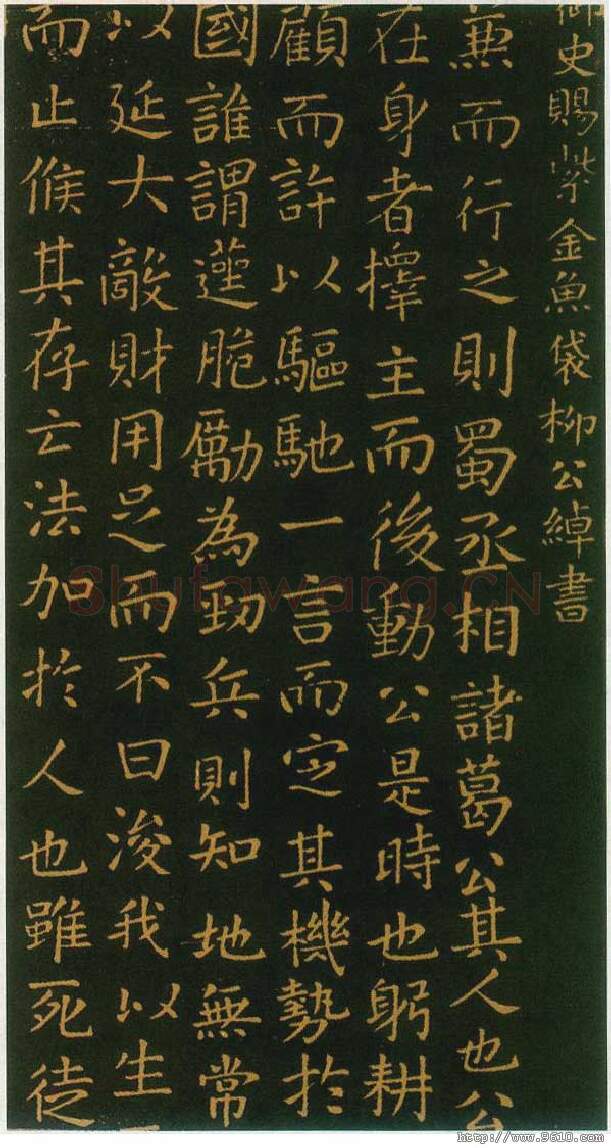 御史賜紫金魚袋柳公綽書
兼而行之則蜀丞相諸葛公其人也公
在身者擇主而後動公是時也躬耕
顧而許以驅馳一言而定其機勢於
國誰謂蓬脆勵為勁兵則知地無常
以延大敵財用足而不曰浚我以生
而止候其存亡法加於人也雖死徒
Shufawang.CN
http://www.9610.com